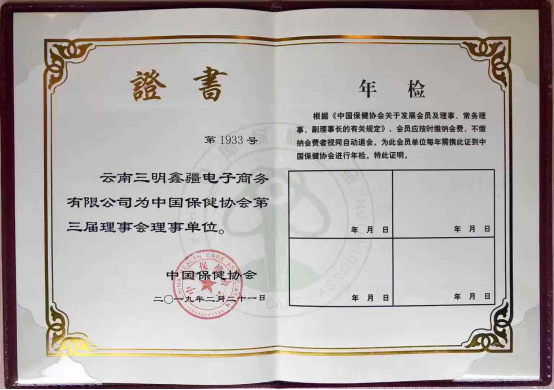 證書
第 1933 号
云南三明鑫疆电子商务
有限公司为中国保健协会第
三届理事会理事单位。
中国保健协会
二〇一九年二月二十一日
年检
根据《中国保健协会关于发展会员及理事、常务理
事、副理事长的有关规定》，会员应按时缴纳会费，不缴
纳会费者视同自动退会。为此会员单位每年需携此证到中
国保健协会进行年检。特此证明。
年 月 日
年 月 日
年 月 日
年 月 日